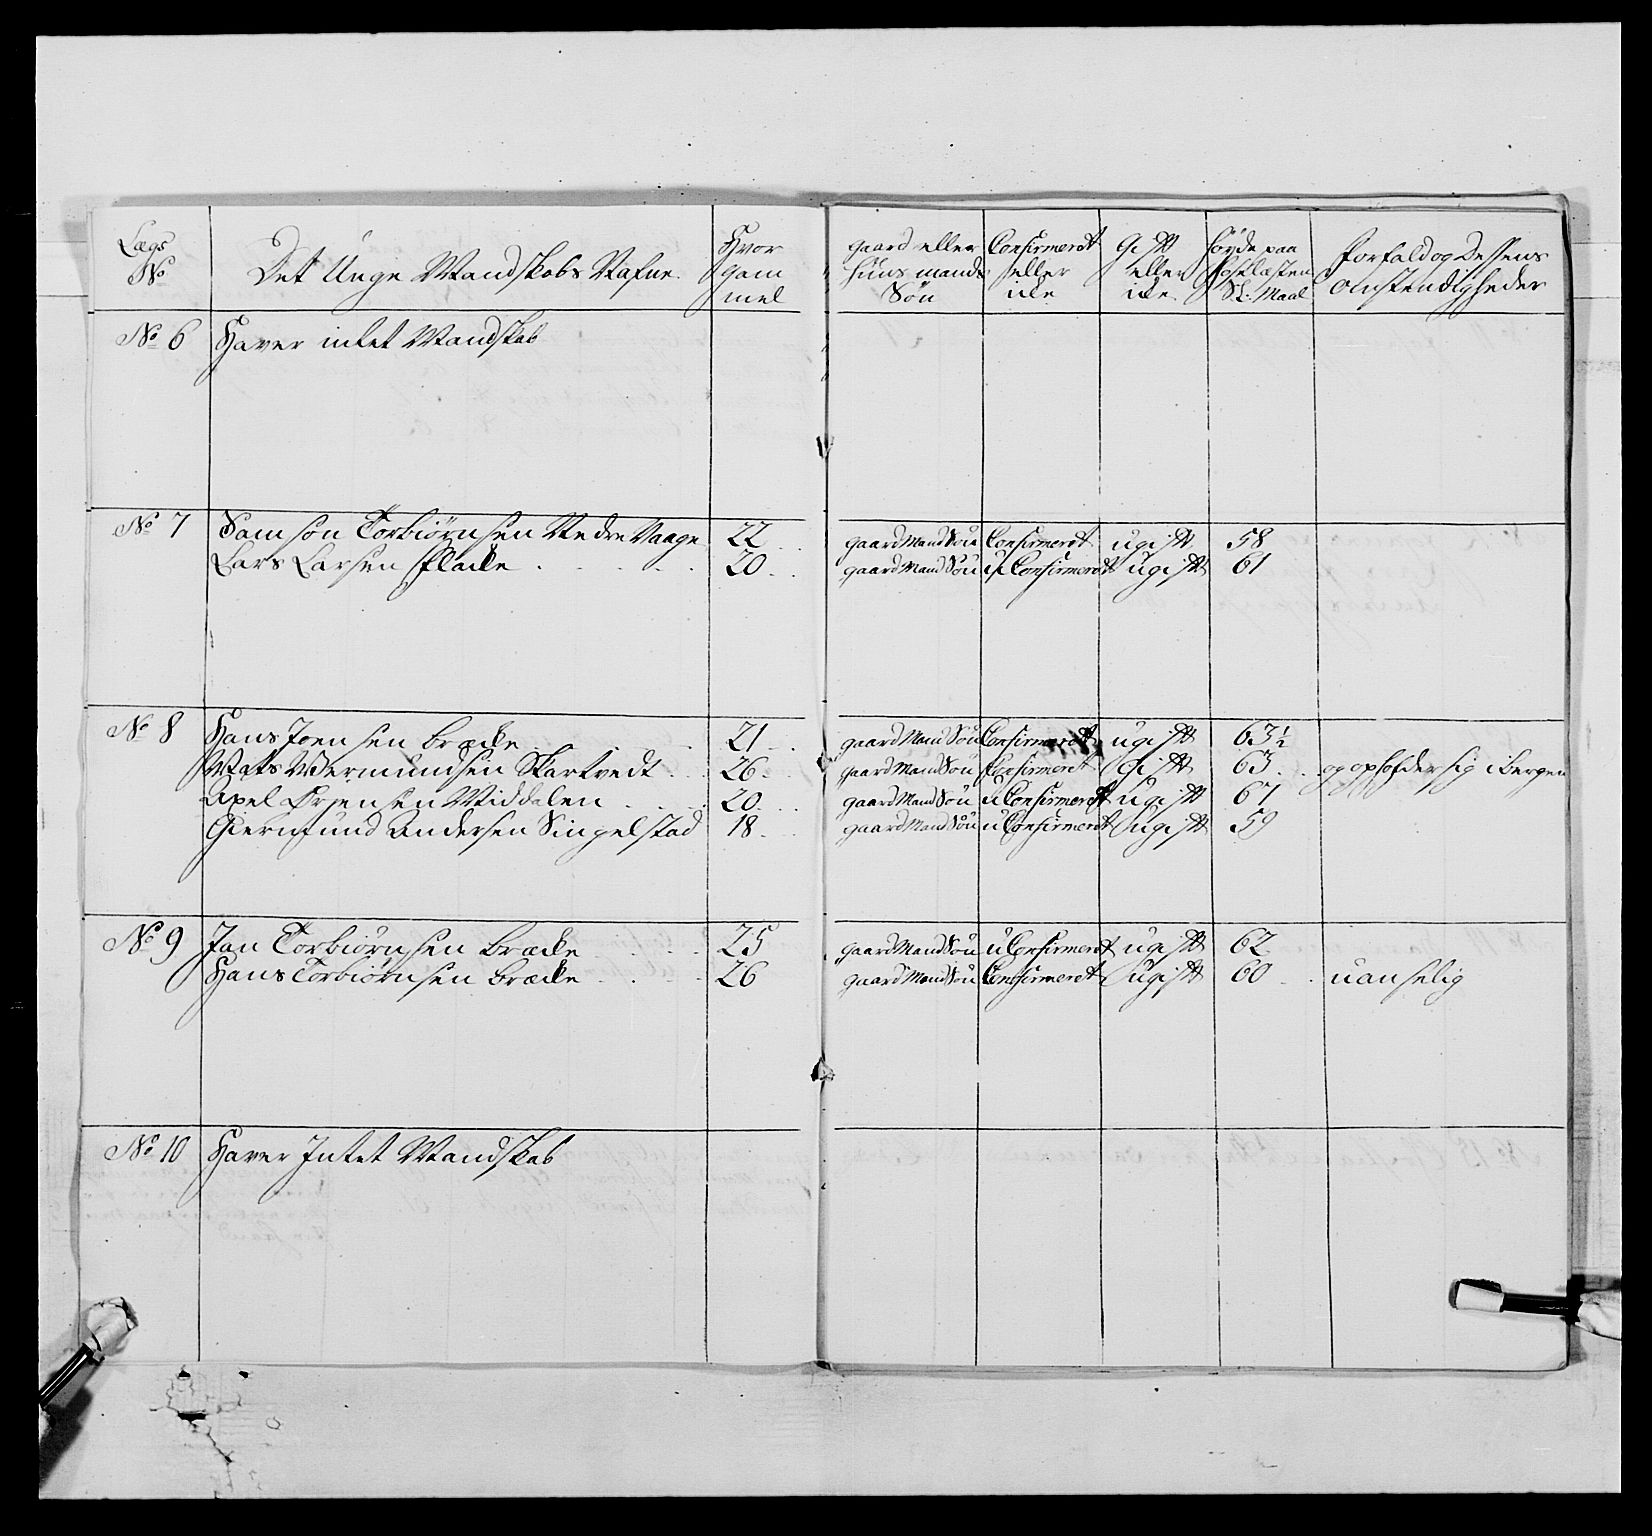 Lægs No | Det Unge Mandskabs Nafne | Hvor gam mel | gaard eller huus mands Søn | Confirmerdt eller icke | Gift eller icke | Høyde paa Hoselæsten Sl: Maal | Forfald og Dessens omstendigheder
No 6 | Haver intet Mandskab
No 7 | Samson Torbiørnsen Nedre Vaage | 22 | gaard Mand Søn | Confirmerdt | ugift | 58
Lars Larsen Flacke | 20 | gaard Mand Søn | u Confirmerdt | ugift | 61
No 8 | Hans Joensen Bracke | 21 | gaard Mand Søn | Confirmerdt | ugift | 63 1/2
Mats Wermundsen Skartvedt | 26 | gaard Mand Søn | Confirmerdt | Gift | 63 | og opholder sig i Bergen
Axel Ørjensen Middalen | 20 | gaard Mand Søn | u Confirmerdt | ugift | 61
Giermund Andersen Singelstad | 18 | gaard Mand Søn | u Confirmerdt | ugift | 59
No 9 | Jan Torbiørnsen Bracke | 25 | gaard Mand Søn | u Confirmerdt | ugift | 62
Hans Torbiørnsen Bracke | 26 | gaard Mand Søn | Confirmerdt | ugift | 60 | uanselig
No 10 | Haver Intet Mandskab